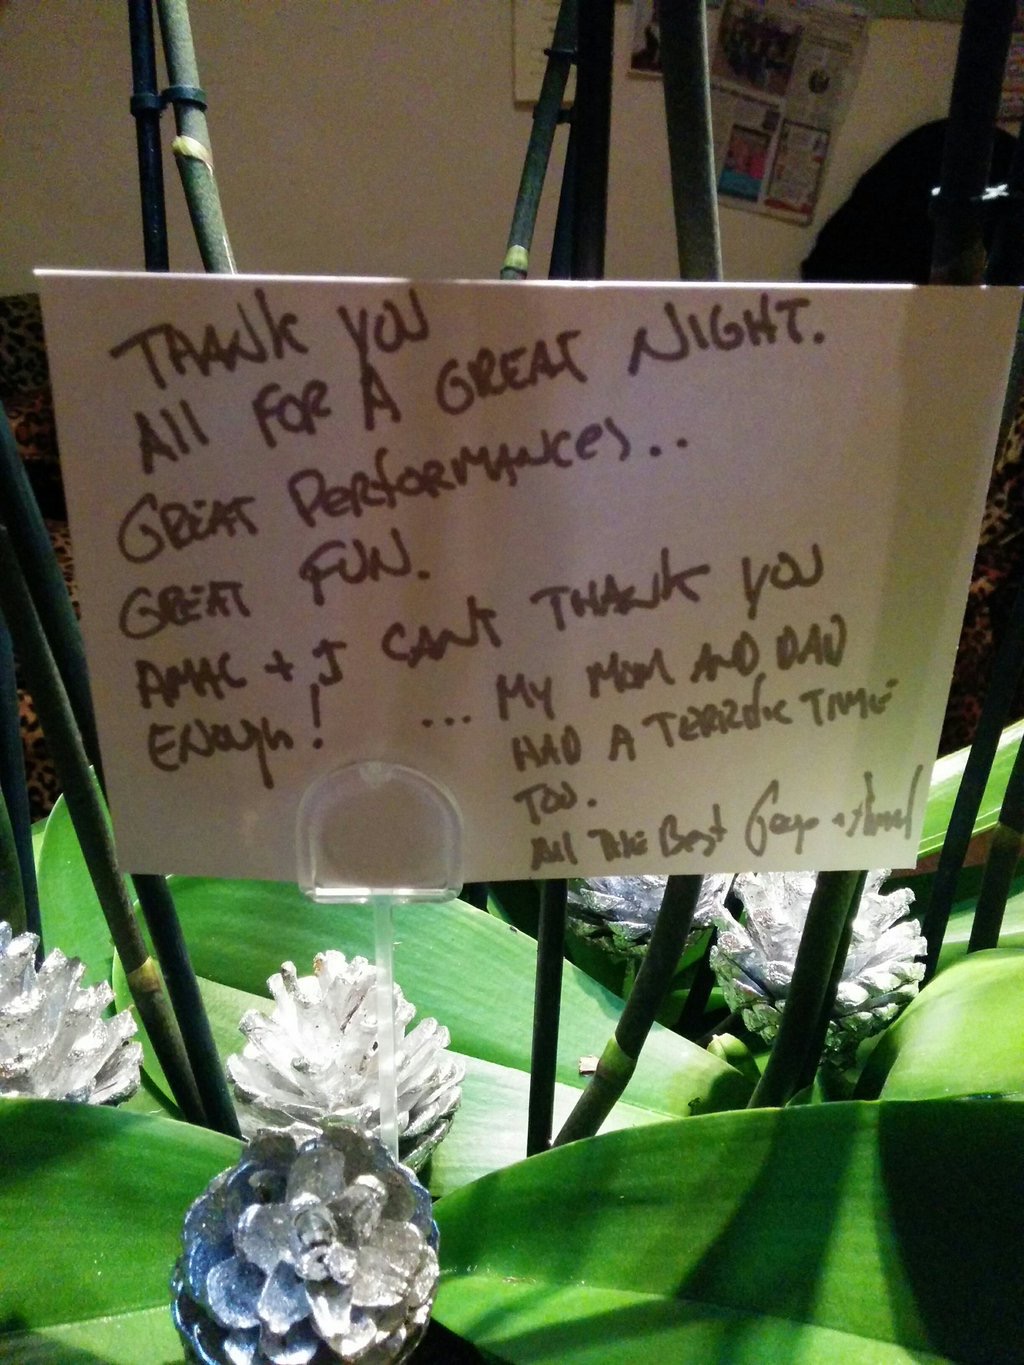 THANK YOU
All FOR A GREAT NIGHT.
GREAT PERFORMANCES..
GREAT FUN.
AMAL + I CAN'T THANK YOU
ENOUGH!
... MY MOM AND DAD
HAD A TERRIFIC TIME
TOO.
All THE BEST George